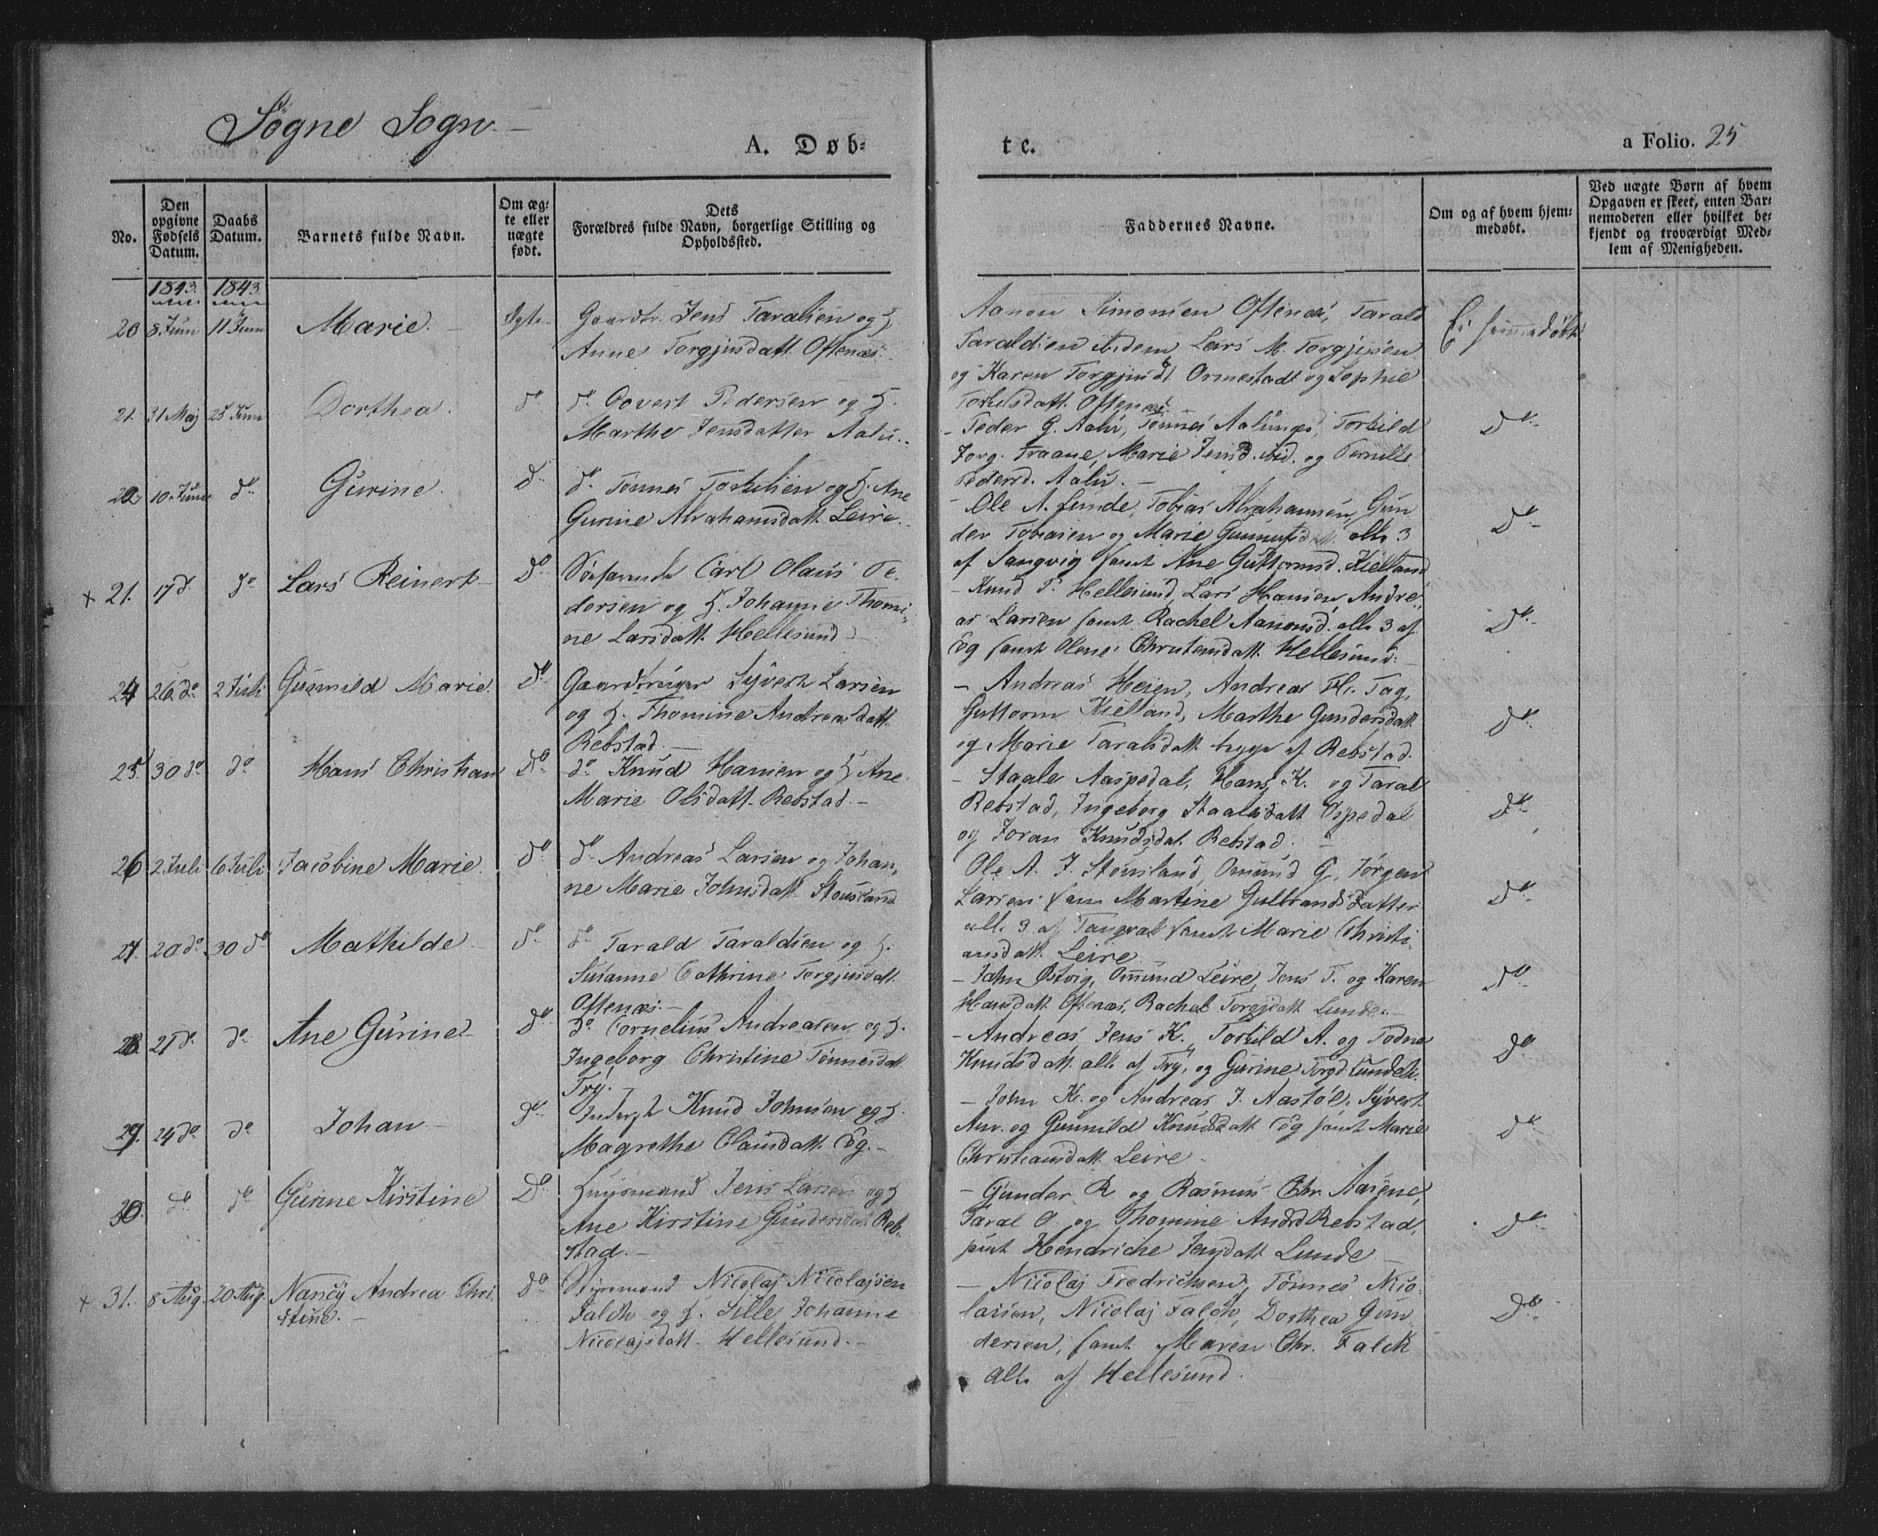 Søgne Sogn.
A. Døb-
te.
a Folio. 25
No.
Den opgivne Fødsels Datum.
Daabs Datum.
Barnets fulde Navn.
Om æg-te eller uægte født.
Dets Forældres fulde Navn, borgerlige Stilling og Opholdssted.
Faddernes Navne.
Om og af hvem hjem-medøbt.
Ved uægte Børn af hvem Opgaven er skeet, enten Bar-nemoderen eller hvilket be-kjendt og troværdigt Med-lem af Menigheden.
1843. 1843.
20 8 Juni 11 Juni Marie. Ægte
Gaardbr. Jens Taralsen og H.
Anne Torgjusdatt. Oftenæs.
Aanon Simonsen Oftenæs, Tarald
Taraldsen ibidem, Lars M. Torgjusen
og Karen Torgjusd. Ormestadt og Sophie
Torkelsdatt. Oftenæs.
Ei hjemmedøbt
21. 31 Maj 25 Juni Dorthea. do
do Govert Pedersen og H.
Marthe Jensdatter Aalu.
Peder G. Aalu, Tønnes Aalunges, Torkild
Jørg. Traane, Marie Jensd. ibid. og Pernille
Pedersd. Aalu.
Do
22 10 Juni do Gurine. D
do Tønnes Torkelsen og H. Ane
Gurine Abrahamsdatt. Leire.
Ole A. Lunde, Tobias Abrahamsen, Gun
der Tobiasen og Marie Gunnufsdatt. alle 3
af Langvig samt Ane Guttormsd. Kielland
Do
+ 21. 17 d. do Lars Reinert Do
Søefarende Carl Olaus Pe-
dersen og H. Johanne Thomi-
ne Larsdatt. Hellesund
Knud P. Hellesund, Lars Hansen, Andre-
as Larsen samt Rachel Aanonsd. alle 3 af
Eeg samt Olene Christensdatt. Hellesund.
Do
24 26 do 2 Juli Gunnild Marie. Do
Gaardbruger Syvert Larsen
og H. Thomine Andreasdatt.
Rebstad.
Andreas Heien, Andreas H. Tag,
Guttorm Kielland, Marthe Gundersdatt.
og Marie Taralsdatt. begge af Rebstad.
Do
25. 30 do do Hans Christian Do
do Knud Hansen og H. Ane
Marie Olsdatt. Rebstad.
Staale Aaspedal, Hans K. og Taral
Rebstad, Ingeborg Staalesdatt Ospedal
og Joran Knudsdat. Rebstad.
Do
26 2 Juli 6 Juli Jacobine Marie. Do
do Andreas Larsen og Johan-
ne Marie Johnsdatt. Stousland
Ole A. J. Stousland, Omund G., Jørgen
Larsen sam Martine Gulbrandsdatter
alle 3 af Tangval samt Marie Christi
ansdatt. Leire.
Do
27. 20 do 30 do Mathilde do
do Tarald Taraldsen og H.
Susanne Cathrine Torgjusdatt.
Oftenæs.
John Østvig, Omund Leire, Jens T. og Karen
Hansdatt. Oftenæs, Rachel Torgjdatt. Lunde.
Do
28. 21 do do Ane Gurine Do
do Cornelius Andreasen og H.
Ingeborg Christine Tønnesdatt
Try.
Andreas, Jens K., Torkild A. og Todne
Knudsdatt. alle af Try, og Gurine Torgd. Lunde.
Do
29. 24 do do Johan Do
Inderst Knud Johnsen og H.
Magrethe Olausdatt. Eeg.
John K. og Andreas J. Aastøl, Syvert
Anr. og Gunnild Knudsdatt Eeg samt Marie
Christiansdatt. Leire
Do
30. do do Gurine Kirstine Do
Huusmand Jens Larsen og H.
Ane Kirstine Gundersdat. Reb-
stad.
Gunder R. og Rasmus Chr. Aasene,
Taral O. og Thomine Andrd Rebstad,
samt Hendriche Jensdatt Lunde
Do
+ 31. 8 Aug. 20 Aug. Nancy Andrea Chri-
stine. Do
Styrmand Nicolaj Nicolajsen
Falch og H. Sille Johanne
Nicolajsdatt. Hellesund.
Nicolaj Fredrichsen, Tønnes Nico-
laisen, Nicolaj Falch, Dorthea Gun
dersen, samt Maren Chr. Falck
alle af Hellesund.
Do